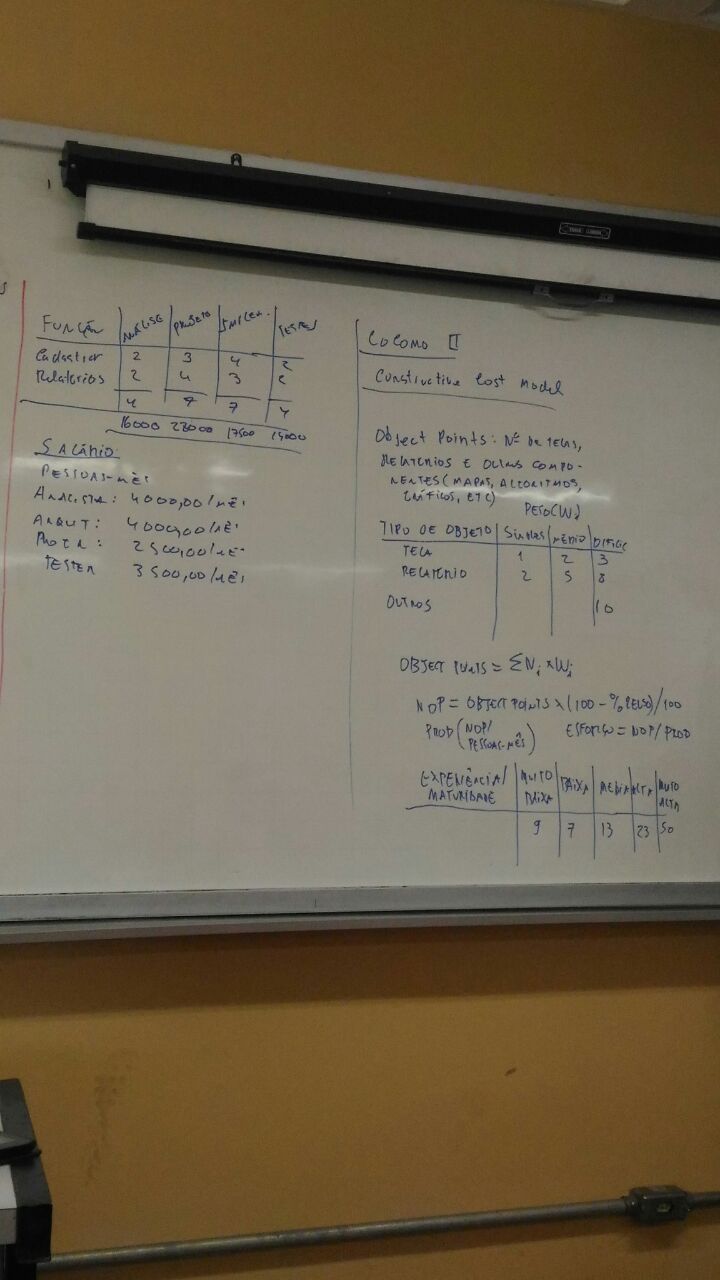 FUNÇÃO ANÁLISE PROJETO IMPLEM. TESTES
Cadastrar 2 3 4 2
Relatórios 2 4 3 2
4 7 7 4
16000 28000 17500 14000
SALÁRIO:
PESSOAS-MÊS
ANALISTA: 4000,00/MÊS
ARQUIT: 4000,00/MÊS
PROGR: 2500,00/MÊS
TESTER 3500,00/MÊS
COCOMO II
Constructive Cost Model
Object Points: Nº DE TELAS,
RELATÓRIOS E OUTROS COMPO-
NENTES (MAPAS, ALGORITMOS,
GRÁFICOS, ETC)
PESO(W)
TIPO DE OBJETO SIMPLES MÉDIO DIFÍCIL
TELA 1 2 3
RELATÓRIO 2 5 8
OUTROS 10
OBJECT POINTS = ΣNi × Wi
NOP = OBJECT POINTS × (100 - % REUSO)/100
PROD (NOP/PESSOAS-MÊS) ESFORÇO = NOP/PROD
EXPERIÊNCIA/MATURIDADE MUITO BAIXA BAIXA MÉDIA ALTA MUITO ALTA
7 13 23 50